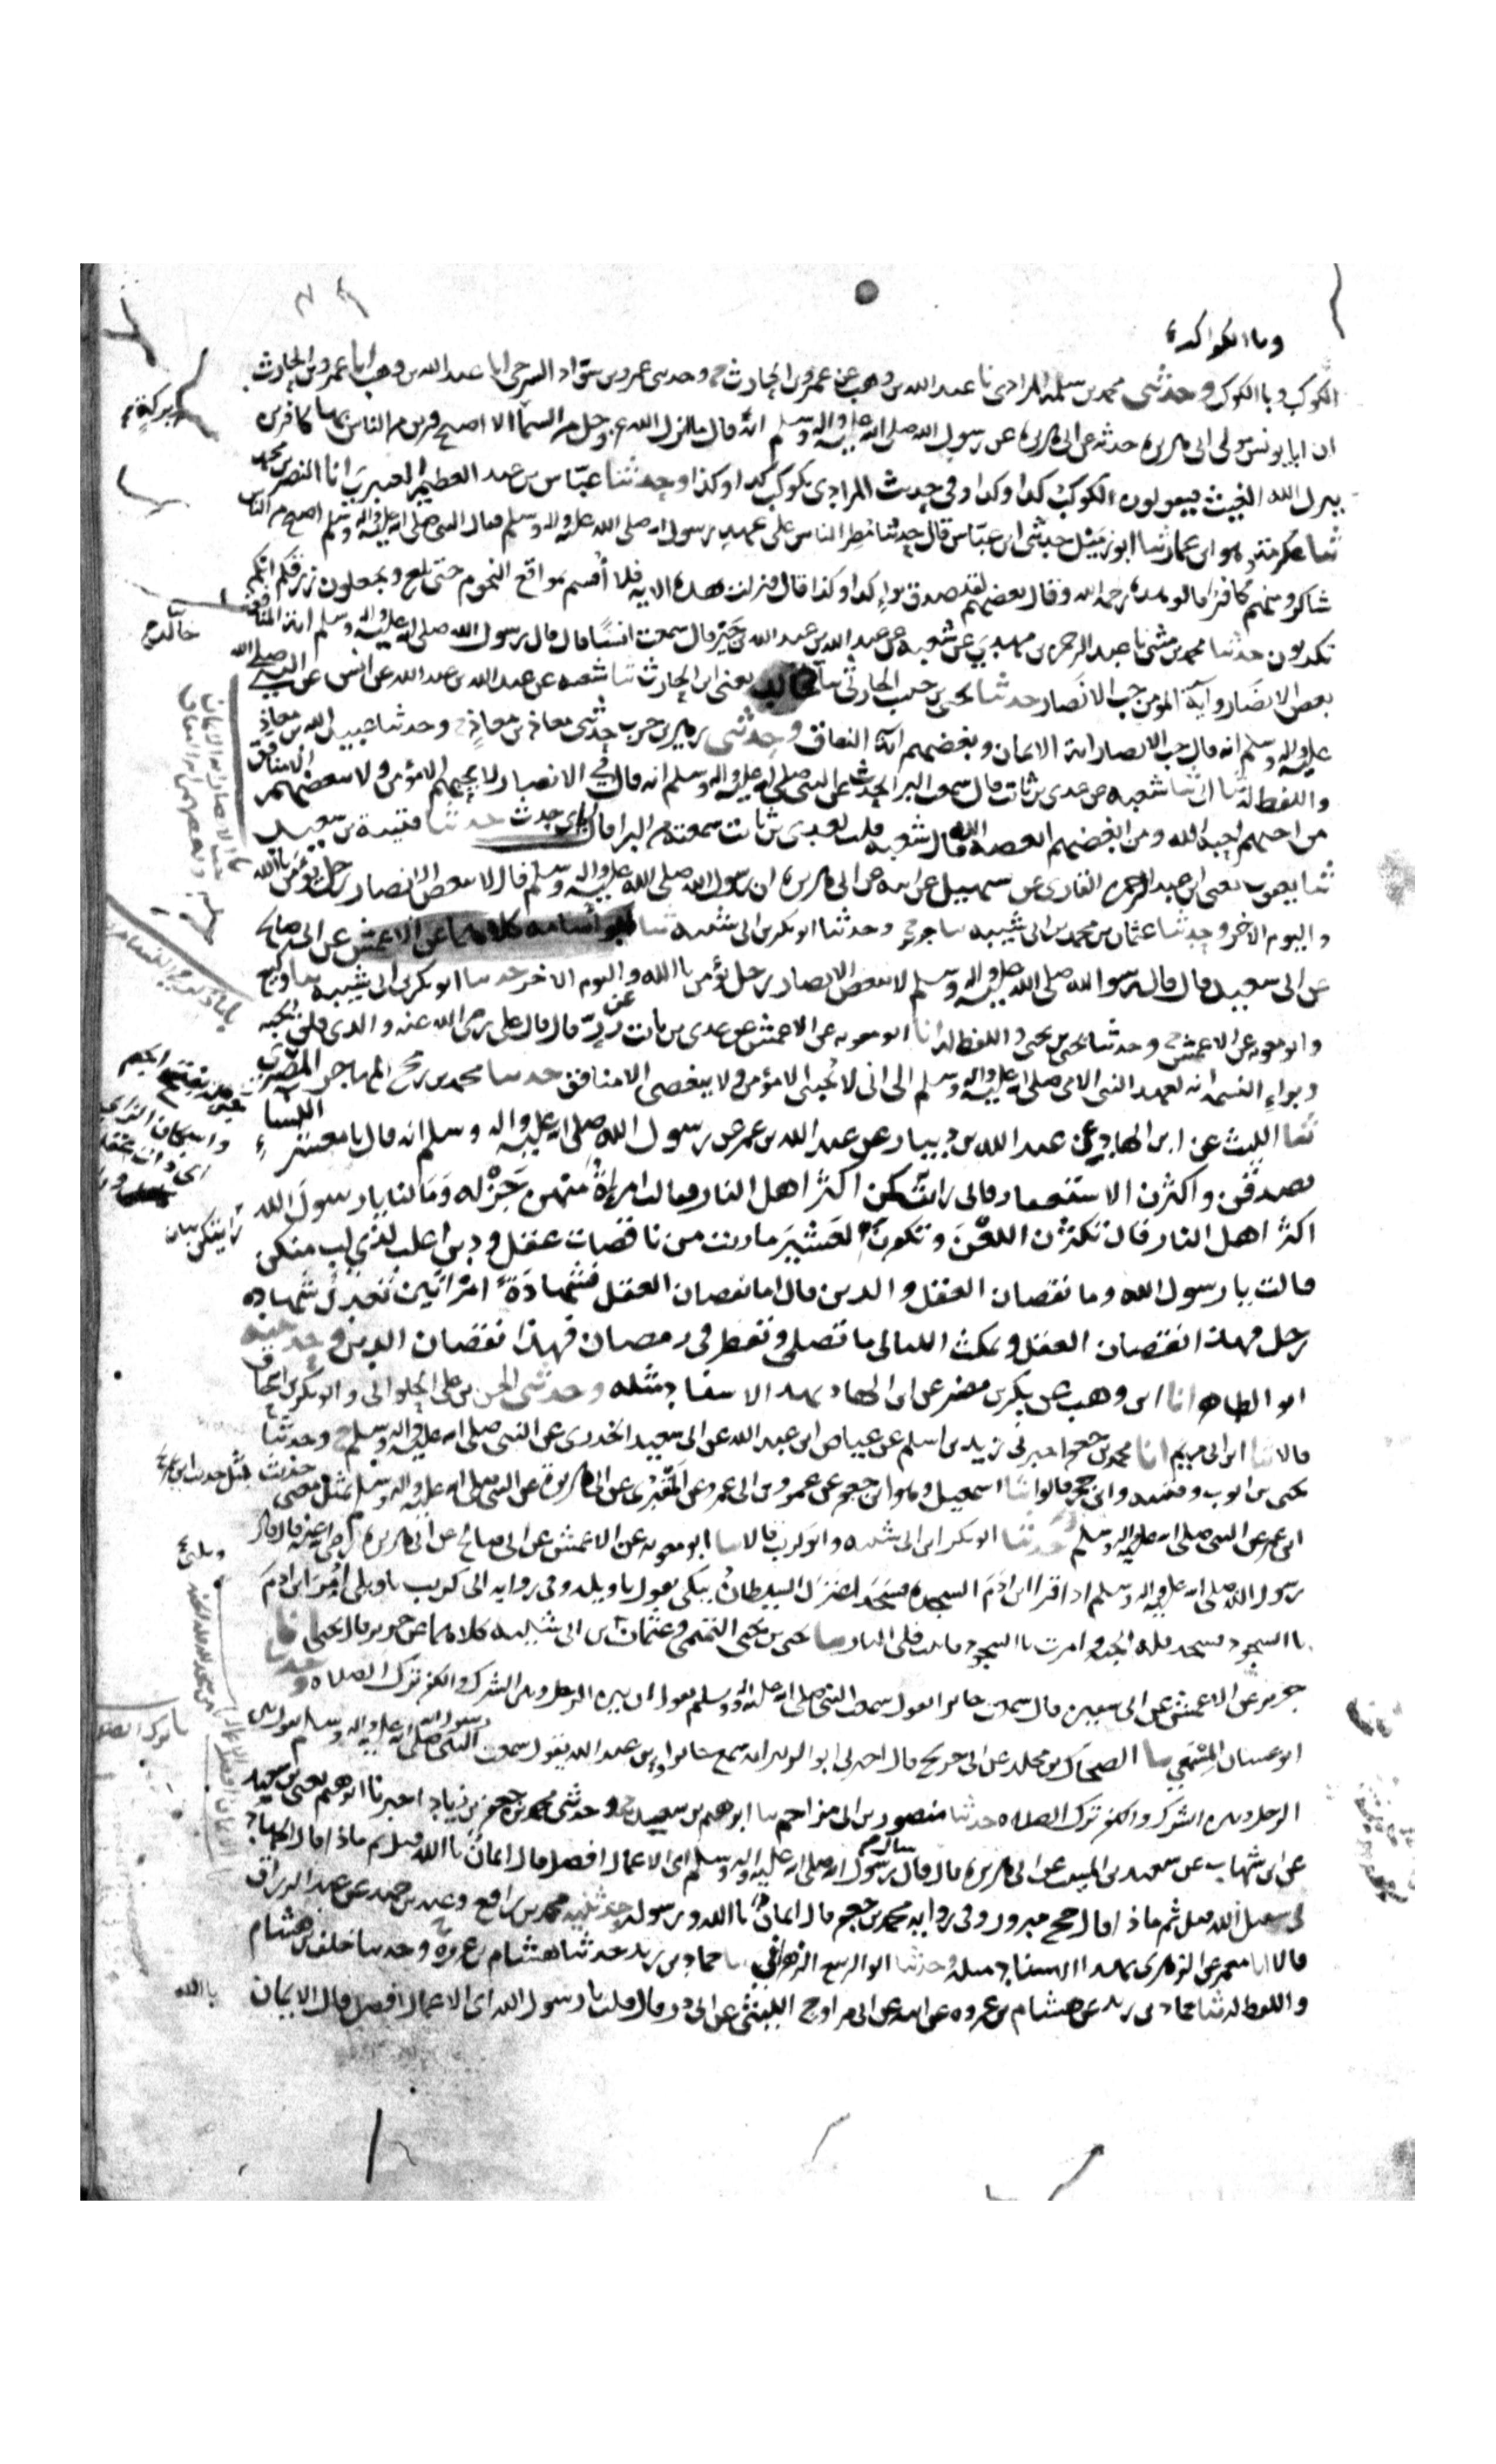 وبالكواكب
الكوكب وبالكوكب وحدثنى محمد بن سلمة المرادى نا عبد الله بن وهب عن عمرو بن الحارث ح وحدثنى عمرو بن سواد السرحى انا عبد الله بن وهب انا عمرو بن الحارث
ان ابا يونس مولى ابى هريره حدثه عن ابى هريره عن رسول الله صلى الله عليه واله وسلم انه قال ما انزل الله عز وجل من السما الا اصبح فريق من الناس بها كافرين
ينزل الله الغيث فيقولون الكوكب كذا وكذا وفى حديث المرادى بكوكب كذا وكذا وحدثنا عباس بن عبد العظيم العنبرى انا النضر بن محمد
ثنا عكرمة وهو ابن عمار ثنا ابو زميل حدثنى ابن عباس قال حدثنا مطر الناس على عهد رسول الله صلى الله عليه واله وسلم فقال النبى صلى الله عليه واله وسلم اصبح من الناس
شاكر ومنهم كافر قالو هذه رحمة الله وقال بعضهم لقد صدق نوء كذا وكذا قال فنزلت هذه الايه فلا أقسم بمواقع النجوم حتى بلغ وتجعلون رزقكم انكم
تكذبون حدثنا محمد بن مثنى نا عبد الرحمن بن مهدى عن شعبه عن عبد الله بن عبد الله بن جبر قال سمعت انسا قال قال رسول الله صلى الله عليه واله وسلم اية المنافق
بغض الانصار وآية المومن حب الانصار حدثنا يحيى بن حبيب الحارثى نا خالد يعنى ابن الحارث ثنا شعبه عن عبد الله بن عبد الله عن انس عن النبى صلى الله
عليه واله وسلم انه قال حب الانصار اية الايمان وبغضهم اية النفاق وحدثنى زهير بن حرب حدثنى معاذ بن معاذ ح وحدثنا عبيد الله بن معاذ
واللفظ له ثنا ابى ثنا شعبه عن عدى بن ثابت قال سمعت البرا يحدث عن النبى صلى الله عليه واله وسلم انه قال فى الانصار لا يحبهم الا مؤمن ولا يبغضهم الا منافق
من احبهم احبه الله ومن ابغضهم ابغضه الله قال شعبه قلت لعدى بن ثابت سمعته من البرا قال اياى حدث حدثنا قتيبة بن سعيد
ثنا يعقوب يعنى ابن عبد الرحمن القارى عن سهيل عن ابيه عن ابى هريره ان رسول الله صلى الله عليه واله وسلم قال لا يبغض الانصار رجل يؤمن بالله
واليوم الاخر وحدثنا عثمان بن محمد بن ابى شيبه نا جرير ح وحدثنا ابو بكر بن ابى شيبه ثنا ابو أسامه كلاهما عن الاعمش عن ابى صالح
عن ابى سعيد قال قال رسول الله صلى الله عليه واله وسلم لا يبغض الانصار رجل يؤمن بالله واليوم الاخر حدثنا ابو بكر بن ابى شيبه نا وكيع
وابو معويه عن الاعمش ح وحدثنا يحيى بن يحيى واللفظ له انا ابو معويه عن الاعمش عن عدى بن ثابت عن زر قال قال على رضى الله عنه والذى فلق الحبه
وبراء النسمه انه لعهد النبى الامى صلى الله عليه واله وسلم الى انى لا يحبنى الا مؤمن ولا يبغضنى الا منافق حدثنا محمد بن رمح المهاجر المصرى
ثنا الليث عن ابن الهاد عن عبد الله بن دينار عن عبد الله بن عمر عن رسول الله صلى الله عليه واله وسلم انه قال يا معشر النسآء
تصدقن واكثرن الاستغفار فانى رايتكن اكثر اهل النار فقالت امراة منهن جزلة وما لنا يا رسول الله
اكثر اهل النار قال تكثرن اللعن وتكفرن العشير ما رايت من ناقصات عقل ودين اغلب لذى لب منكن
قالت يا رسول الله وما نقصان العقل والدين قال اما نقصان العقل فشهادة امراتين تعدل شهاده
رجل فهذا نقصان العقل وتمكث الليالى ما تصلى وتفطر فى رمضان فهذا نقصان الدين وحدثنيه
ابو الطاهر انا ابن وهب عن بكر بن مضر عن ابن الهاد بهذا الاسناد مثله وحدثنى الحسن بن على الحلوانى وابو بكر بن اسحاق
قالا ثنا ابن ابى مريم انا محمد بن جعفر اخبرنى زيد بن اسلم عن عياض ابن عبد الله عن ابى سعيد الخدرى عن النبى صلى الله عليه واله وسلم ح وحدثنا
يحيى بن ايوب وقتيبه وابن حجر قالوا ثنا اسمعيل وهو ابن جعفر عن عمرو بن ابى عمرو عن المقبرى عن ابى هريرة عن النبى صلى الله عليه واله وسلم بمثل معنى
ابن عمر عن النبى صلى الله عليه واله وسلم حدثنا ابو بكر ابن ابى شيبه وابو كريب قالا نا ابو معويه عن الاعمش عن ابى صالح عن ابى هريره رضى الله عنه قال قال
رسول الله صلى الله عليه واله وسلم اذا قرا ابن ادم السجده فسجد اعتزل الشيطان يبكى يقول يا ويله وفى روايه ابى كريب يا ويلى أمر ابن ادم
بالسجود فسجد فله الجنة وامرت بالسجود فابيت فلى النار حدثنا يحيى بن يحيى التميمى وعثمان بن ابى شيبه كلاهما عن جرير قال يحيى انا
جرير عن الاعمش عن ابى سفين قال سمعت جابرا يقول سمعت النبى صلى الله عليه واله وسلم يقول ان بين الرجل وبين الشرك والكفر ترك الصلاه وحدثنا
ابو غسان المسمعى نا الضحاك بن مخلد عن ابن جريج قال اخبرنى ابو الزبير انه سمع جابر بن عبد الله يقول سمعت رسول الله صلى الله عليه واله وسلم يقول بين
الرجل وبين الشرك والكفر ترك الصلاه حدثنا منصور بن ابى مزاحم نا ابرهيم بن سعيد ح وحدثنى محمد بن جعفر بن زياد اخبرنا ابرهيم يعنى بن سعيد
عن ابن شهاب عن سعيد بن المسيب عن ابى هريره قال قال رسول الله صلى الله عليه واله وسلم اى الاعمال افضل قال ايمان بالله قيل ثم ماذا قال الجهاد
فى سبيل الله قيل ثم ماذا قال حج مبرور وفى روايه محمد بن جعفر قال ايمان بالله ورسوله وحدثنيه محمد بن رافع وعبد بن حميد عن عبد الرزاق
قالا انا معمر عن الزهرى بهذا الاسناد مثله وحدثنا ابو الربيع الزهرانى نا حماد بن زيد حدثنا هشام بن عروة ح وحدثنا خلف بن هشام
واللفظ له ثنا حماد بن زيد عن هشام بن عروه عن ابيه عن ابى مراوح الليثى عن ابى ذر قال قلت يا رسول الله اى الاعمال افضل قال الايمان
بالله